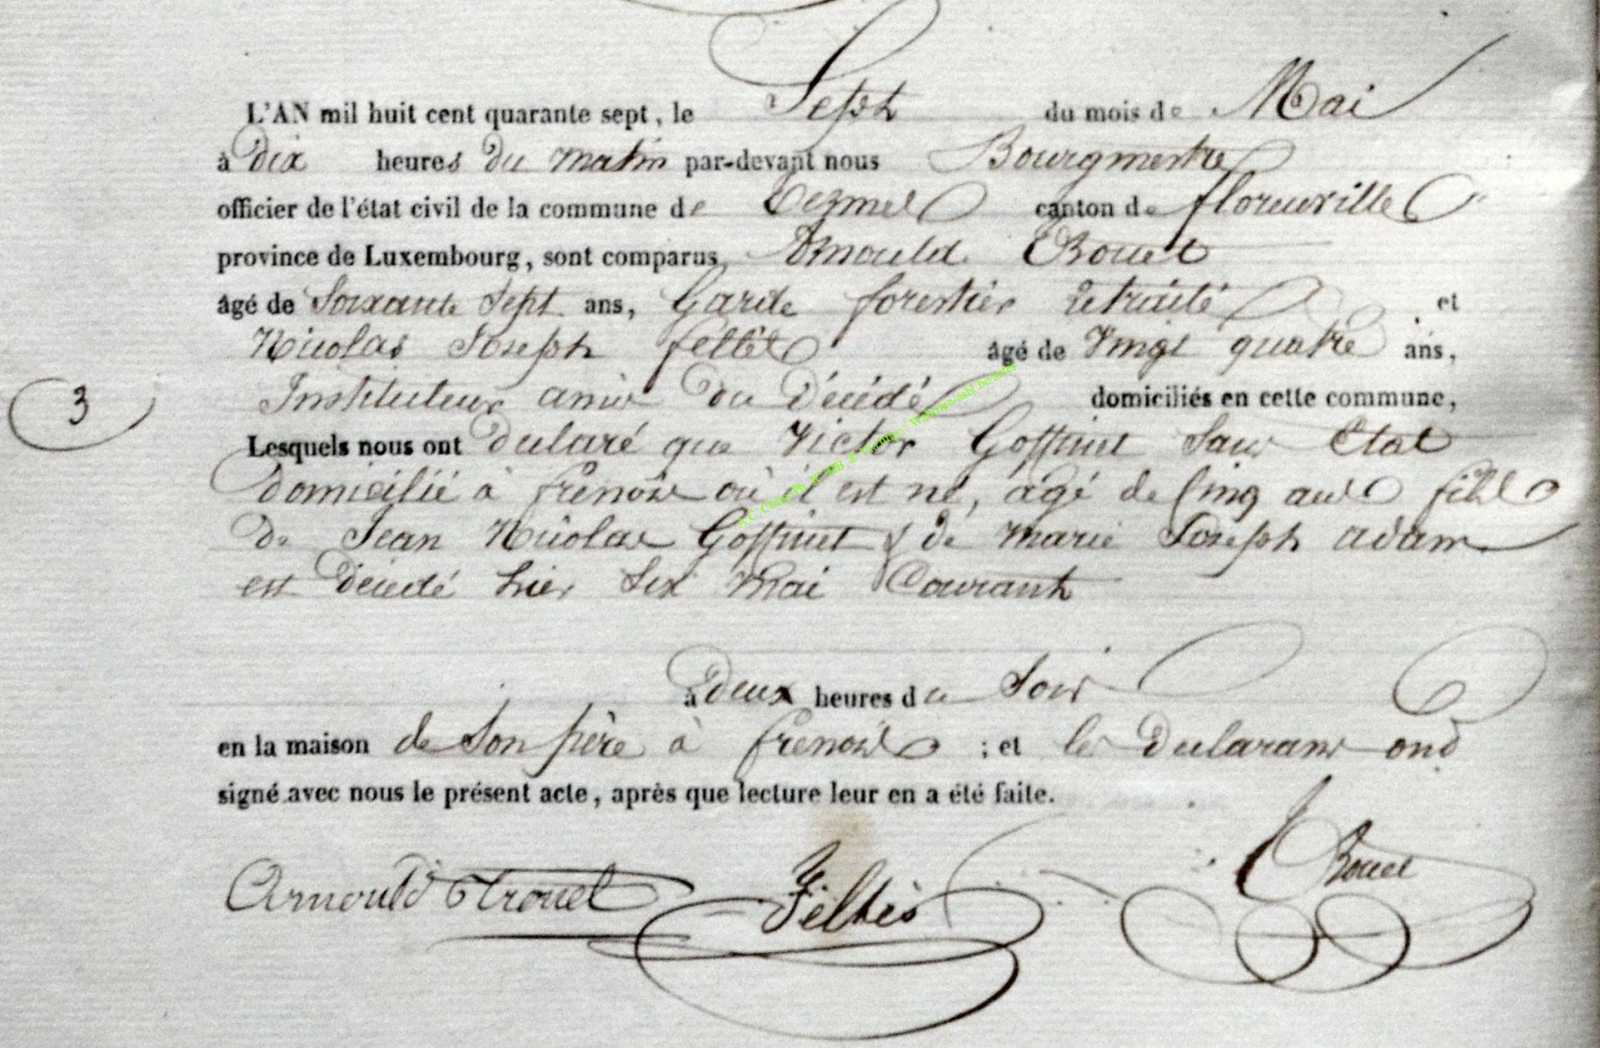 L'AN mil huit cent quarante sept, le Sept du mois de Mai
à Dix heures du matin par-devant nous Bourgmestre
officier de l'état civil de la commune de Termes canton de florenville
province de Luxembourg, sont comparus Arnould
âgé de Soixante Sept ans, Garde forestier retraité et
Nicolas Joseph âgé de Vingt quatre ans,
Instituteur amis du Décédé domiciliés en cette commune,
3
Lesquels nous ont déclaré que Victor Goffinet Sans Etat
domicilié à frenois où il est né, âgé de Cinq ans fils
de Jean Nicolas Goffinet & de Marie Joseph adam
est Décédé hier Six Mai Courant
à Deux heures du Soir
en la maison de Son père à frenois ; et les Déclarans ont
signé avec nous le présent acte, après que lecture leur en a été faite.
Arnould